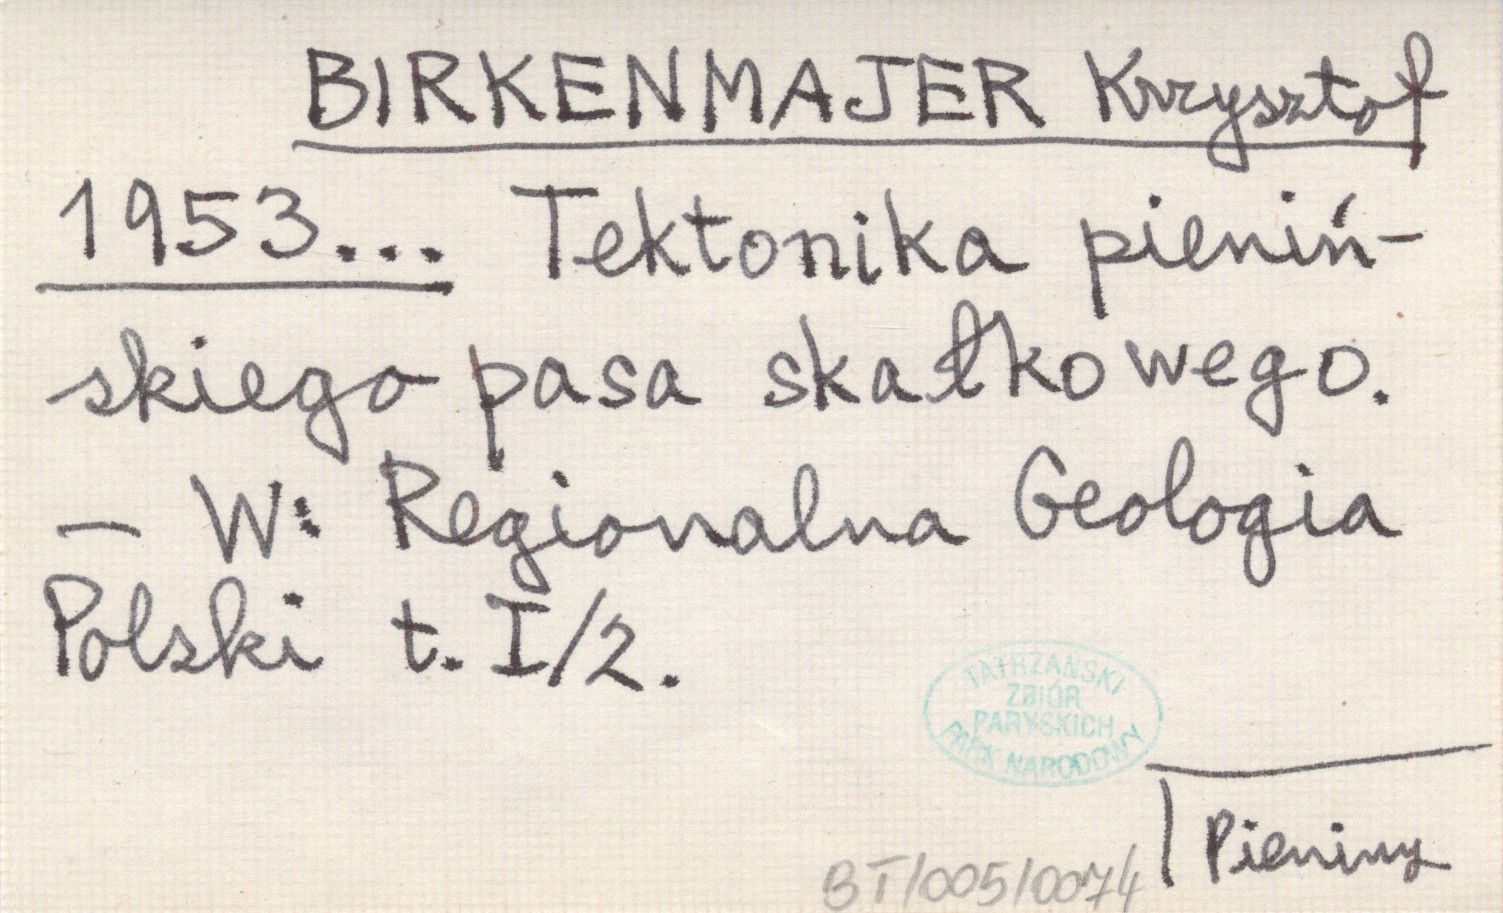 BIRKENMAJER Krzysztof
1953... Tektonika pieniń-
skiego pasa skałkowego.
— W: Regionalna Geologia
Polski t. I/2.
TATRZAŃSKI
ZBIÓR
PARYSKICH
PARK NARODOWY
Pieniny
BT/005/0074